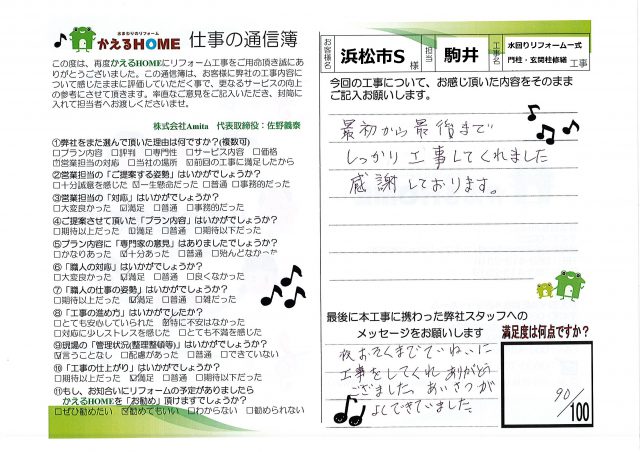 水まわりのリフォーム
かえるHOME 仕事の通信簿
この度は、再度かえるHOMEにリフォーム工事をご用命頂き誠にあ
りがとうございました。この通信簿は、お客様に弊社の工事内容に
ついて感じたままに評価していただく事で、更なるサービスの向上
の参考にさせて頂きます。率直なご意見をご記入いただき、封筒に
入れて担当者へお渡しくださいませ。
株式会社Amita 代表取締役：佐野義泰
①弊社をまた選んで頂いた理由は何ですか?(複数可)
□プラン内容 □評判 □専門性 □サービス内容 □価格
☑営業担当の対応 □当社の場所 ☑前回の工事に満足したから
②営業担当の「ご提案する姿勢」はいかがでしょうか?
□十分誠意を感じた ☑一生懸命だった □普通 □事務的だった
③営業担当の「対応」はいかがでしょうか?
□大変良かった ☑満足 □普通 □事務的だった
④ご提案させて頂いた「プラン内容」はいかがでしょうか?
□期待以上だった ☑満足 □普通 □期待以下だった
⑤プラン内容に「専門家の意見」はありましたでしょうか?
□かなりあった ☑十分あった □普通 □殆んどなかった
⑥「職人の対応」はいかがでしょうか?
□大変良かった ☑満足 □普通 □良くなかった
⑦「職人の仕事の姿勢」はいかがでしょうか?
□期待以上だった ☑満足 □普通 □雑だった
⑧「工事の進め方」はいかがでしたか?
□とても安心していられた ☑特に不安はなかった
□対応に少しストレスを感じた □とても不満を感じた
⑨現場の「管理状況(整理整頓等)」はいかがでしょうか?
☑言うことなし □配慮があった □普通 □できていない
⑩「工事の仕上がり」はいかがでしょうか?
□期待以上だった ☑満足 □普通 □期待以下だった
⑪もし、お知合いにリフォームの予定がありましたら
かえるHOMEを「お勧め」頂けますでしょうか?
□ぜひ勧めたい ☑勧めてもいい □わからない □勧められない
お客様名 浜松市S 様 担当 駒井 工事名 水回りリフォーム一式
門柱・玄関柱修繕 工事
今回の工事について、お感じ頂いた内容をそのまま
ご記入お願いします。
最初から最後まで
しっかり工事してくれました
感謝しております。
最後に本工事に携わった弊社スタッフへの
メッセージをお願いします
夜おそくまでていねいに
工事をしてくれありがとう
ございました。あいさつが
よくできていました。
満足度は何点ですか?
90/100